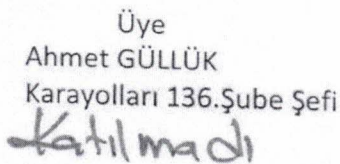 Üye
Ahmet GÜLLÜK
Karayolları 136.Şube Şefi
Katılmadı